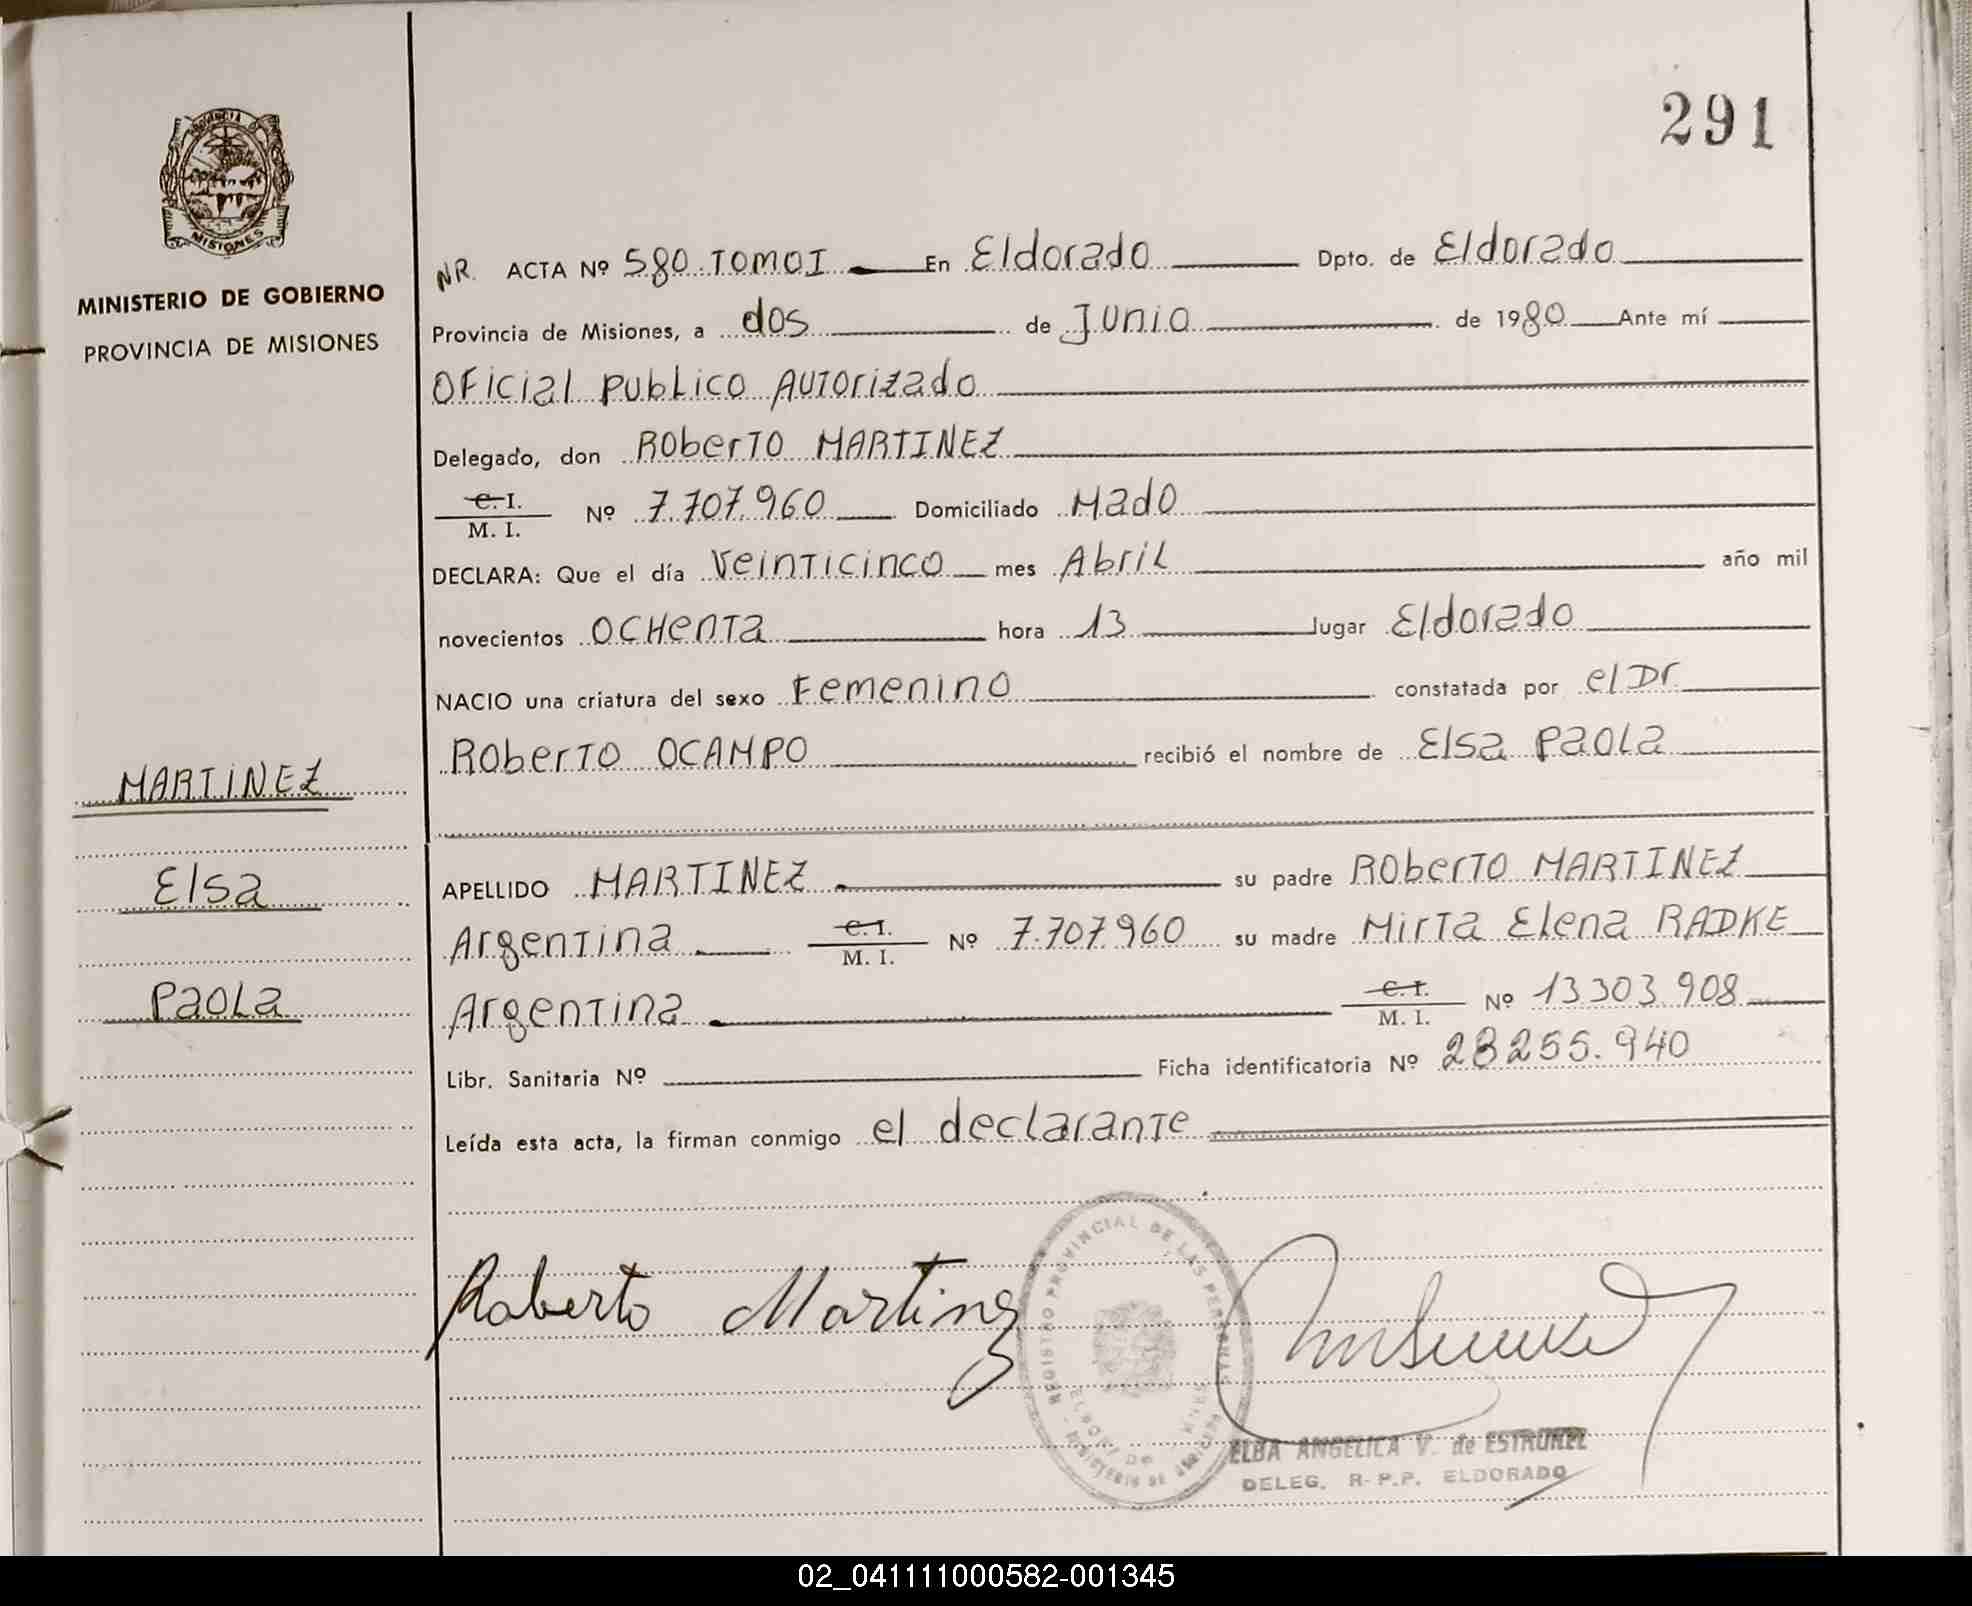 291
PROVINCIA DE
MISIONES
MINISTERIO DE GOBIERNO
PROVINCIA DE MISIONES
MARTINEZ
Elsa
Paola
NR. ACTA Nº 580 TOMO I En Eldorado Dpto. de Eldorado
Provincia de Misiones, a dos de Junio de 1980 Ante mí
Oficial Publico Autorizado
Delegado, don Roberto MARTINEZ
C. I.
M. I. Nº 7.707.960 Domiciliado Mado
DECLARA: Que el día Veinticinco mes Abril año mil
novecientos Ochenta hora 13 lugar Eldorado
NACIO una criatura del sexo Femenino constatada por el Dr
Roberto OCAMPO recibió el nombre de Elsa Paola
APELLIDO MARTINEZ su padre Roberto MARTINEZ
Argentina C. I. M. I. Nº 7.707.960 su madre Mirta Elena RADKE
Argentina C. I. M. I. Nº 13303.908
Libr. Sanitaria Nº Ficha identificatoria Nº 28255.940
Leída esta acta, la firman conmigo el declarante
Roberto Martinez
REGISTRO PROVINCIAL DE LAS PERSONAS
ELBA ANGELICA V. de
DELEG. R.P.P. ELDORADO
02_041111000582-001345